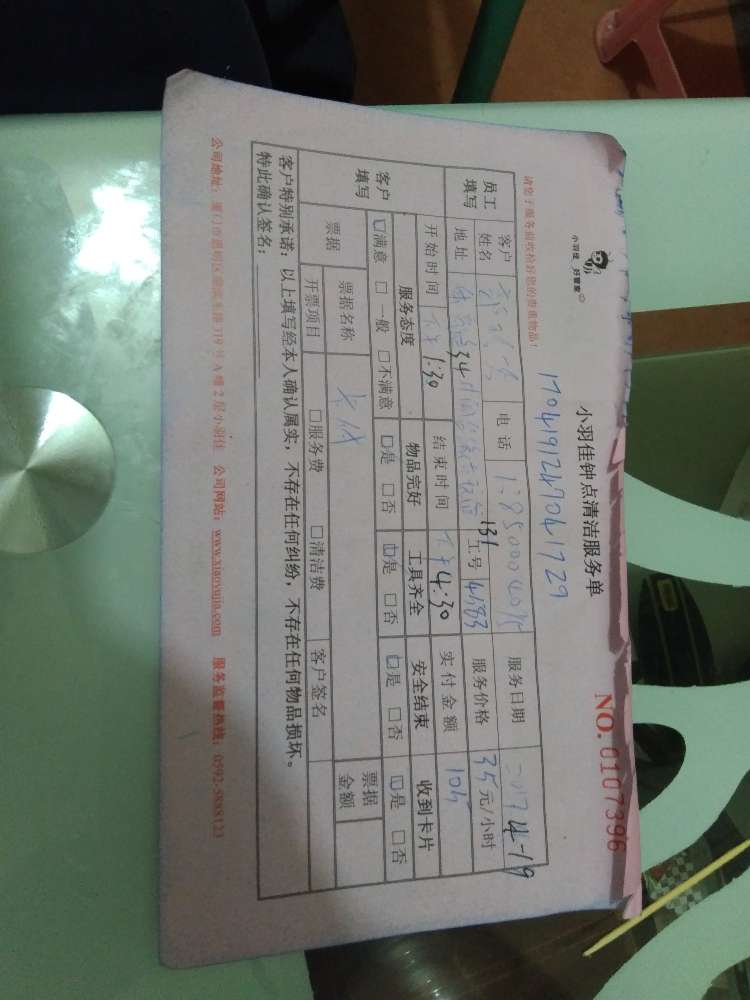 小羽佳 好管家
小羽佳钟点清洁服务单
NO. 0107396
1704191247041729
请您于服务前收检好您的贵重物品!
员工填写
客户姓名 电话 服务日期 2017 4-19
地址 34 131 工号 14583 服务价格 35元/小时
开始时间 下午1:30 结束时间 下午4:30 实付金额 105
客户填写
服务态度 物品完好 工具齐全 安全结束 收到卡片
☑满意 □一般 □不满意 ☑是 □否 ☑是 □否 ☑是 □否 ☑是 □否
票据 票据名称 票据金额
开票项目 □服务费 □清洁费 客户签名
客户特别承诺:以上填写经本人确认属实,不存在任何纠纷,不存在任何物品损坏。
特此确认签名:
公司地址:厦门市思明区 319号A幢2层小羽佳 公司网站:www.xiaoyujia.com 服务监督热线:0592-5888123